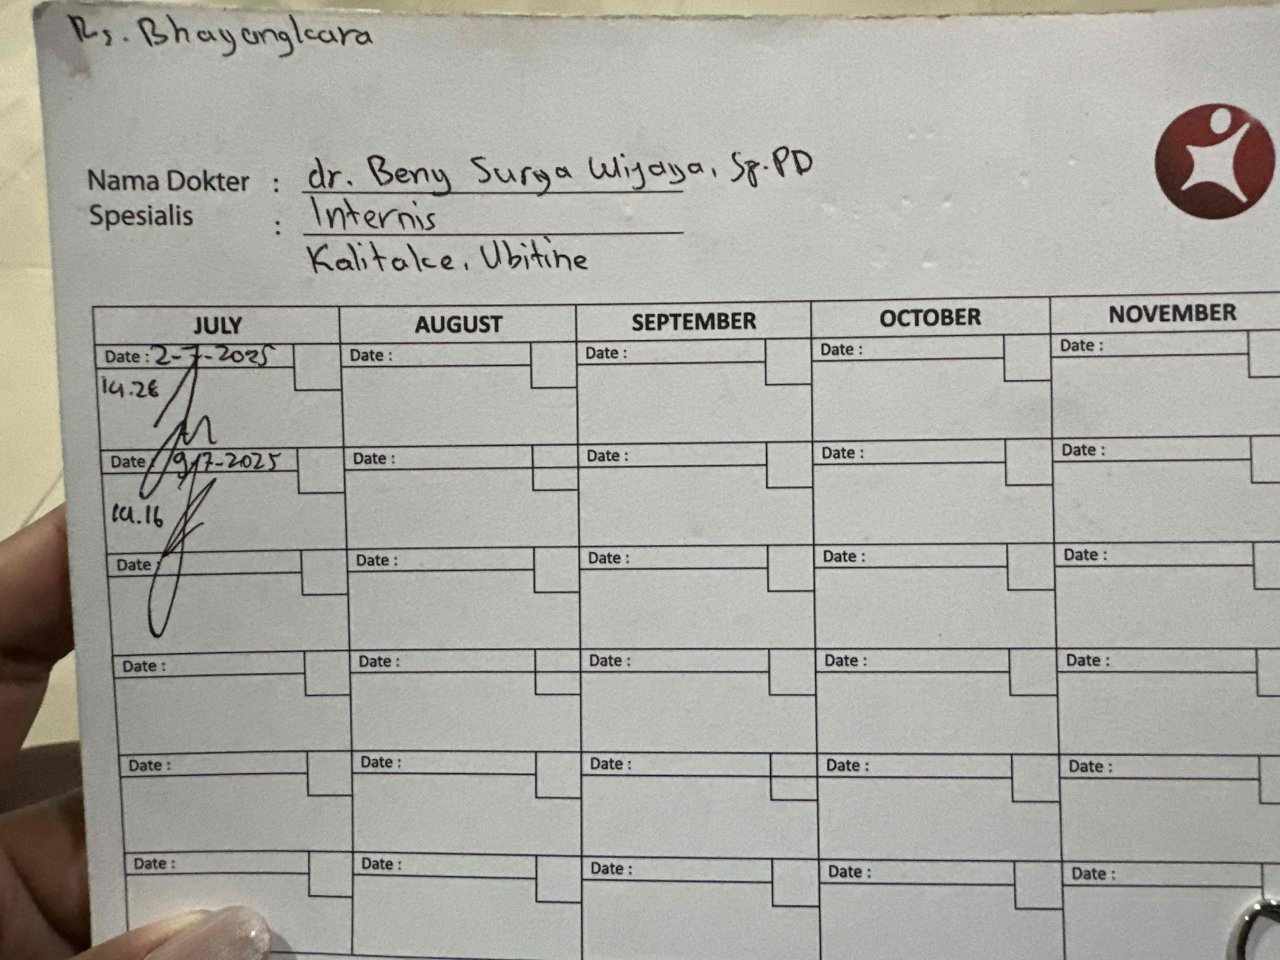 Rs. Bhayangkara
Nama Dokter : dr. Beny Surya Wijaya, Sp.PD
Spesialis : Internis
Kalitake, Ubitine
JULY AUGUST SEPTEMBER OCTOBER NOVEMBER
Date : 2-7-2025 Date : Date : Date : Date :
14.28
Date 9-7-2025 Date : Date : Date : Date :
14.16
Date : Date : Date : Date : Date :
Date : Date : Date : Date : Date :
Date : Date : Date : Date : Date :
Date : Date : Date : Date : Date :